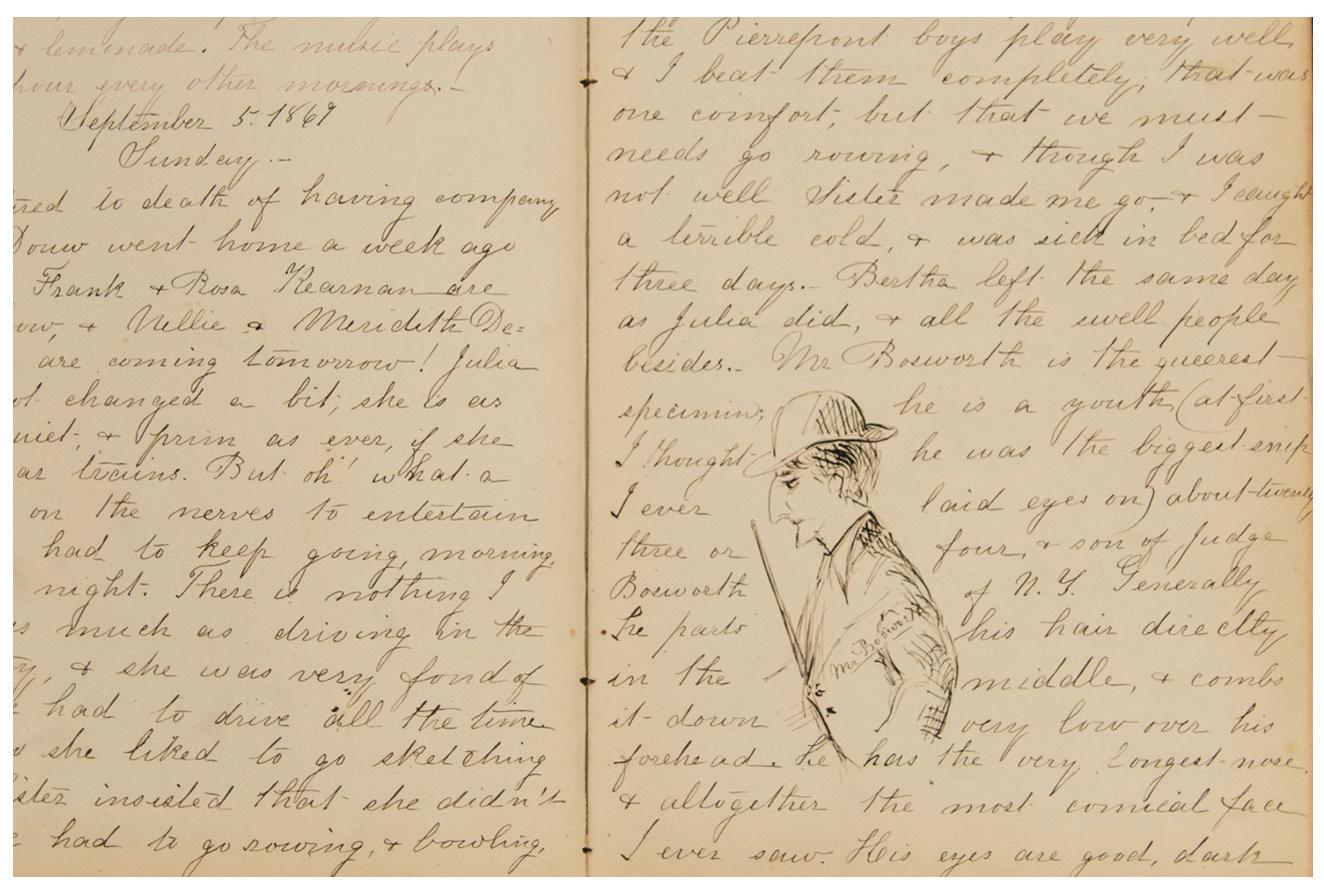 & lemonade. The music plays
hour every other mornings. -
September 5. 1869
Sunday. -
to death of having company
Douw went home a week ago
Frank & Rosa Kearnan are
& Nellie & Meridith De=
are coming tomorrow! Julia
changed a bit; she is as
& prim as ever, if she
trains. But oh! what a
on the nerves to entertain
had to keep going, morning,
night. There is nothing I
much as driving in the
& she was very fond of
had to drive all the time
she liked to go sketching
insisted that she didn't
had to go rowing, & bowling,
the Pierrepont boys play very well
& I beat them completely; that was
one comfort, but that we must
needs go rowing, & though I was
not well Sister made me go, & I caught
a terrible cold, & was sick in bed for
three days. - Bertha left the same day
as Julia did, & all the swell people
besides. - Mr Bosworth is the queerest
specimin; he is a youth (at first
I thought he was the biggest snip
I ever laid eyes on) about twenty
three or four, & son of Judge
Bosworth of N. Y. Generally
he parts his hair directly
in the middle, & combs
it down very low over his
forehead. He has the very longest nose,
& altogether the most comical face
I ever saw. His eyes are good, dark
Mr Bosworth